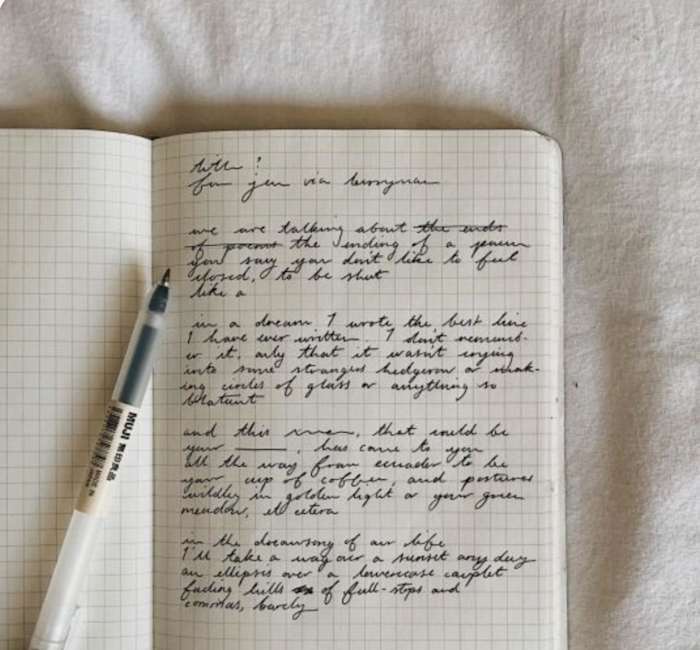 title ?
for jen via berryman
we are talking about the ends
of poems the ending of a poem
you say you don't like to feel
closed, to be shut
like a
in a dream I wrote the best line
I have ever written. I don't rememb-
er it, only that it wasn't crying
into some strangers hedgerow or mak-
ing circles of glass or anything so
blatant
and this, that could be
your ____, has come to you
all the way from ecuador to be
your cup of coffee, and postures
wildly in golden light or your green
meadow, et cetera
in the dreamsong of our life
I'll take a over a sunset any day
an ellipsis over a lowercase couplet
fading hills of full-stops and
commas, barely
MUJI 無印良品